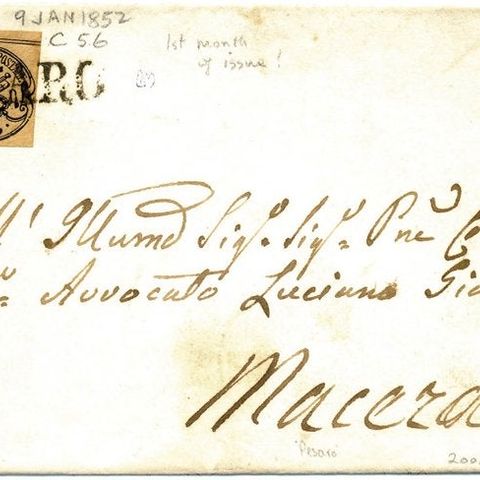 9 JAN 1852
C 56
1st month
of issue!
ARO
M' Illumo Sigr. Sigr. Pne C
Avvocato Luciano Gia
Macera
'Pesaro'
200